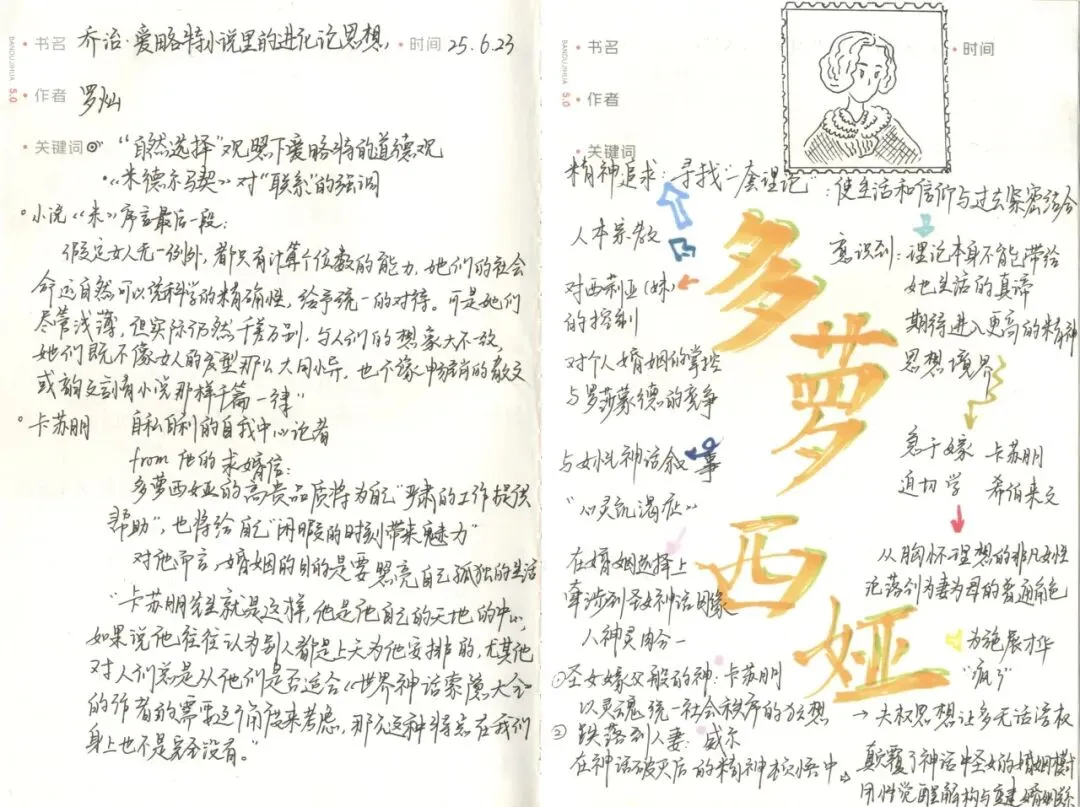 书名 乔治·爱略特小说里的进化论思想, 时间 25.6.23
BANDUJIHUA 5.0
作者 罗灿
关键词 "自然选择"观照下爱略特的道德观
·《米德尔马契》对"联系"的强调
小说《米》序言最后一段:
假定女人无一例外,都只有计算个位数的能力,她们的社会
命运自然可以凭科学的精确性,给予统一的对待。可是她们
尽管浅薄,但实际仍然千差万别,与人们的想象大不一致
她们既不像女人的发型那么大同小异,也不像畅销的散文
或韵文言情小说那样千篇一律"
卡苏朋 自私自利的自我中心论者
from 他的求婚信:
多萝西娅的高贵品质将为自己"严肃的工作提供
帮助",也将给自己"闲暇的时刻带来魅力"
对他而言,婚姻的目的是要照亮自己孤独的生活
"卡苏朋先生就是这样,他是他自己的天地的中心,
如果说他往往认为别人都是上天为他安排的,尤其他
对人们总是从他们是否适合《世界神话索隐大全》
的作者的需要这个角度来考虑,那么这种特点在我们
身上也不是完全没有。"
书名
时间
BANDUJIHUA 5.0
作者
关键词
精神追求:寻找"一套理论":使生活和信仰与过去紧密结合
人本宗教
对西莉亚(妹)
的控制
对个人婚姻的掌控
与罗莎蒙德的竞争
意识到:理论本身不能带给
她生活的真谛
期待进入更高的精神
思想境界
多萝西娅
急于嫁 卡苏朋
迫切学 希伯来文
与女性神话叙事
"心灵饥渴症"
从胸怀理想的非凡女性
沦落到为妻为母的普通角色
在婚姻选择上
牵涉到圣女神话因缘
人神灵肉分一
为施展才华
"疯了"
①圣女嫁父般的神:卡苏朋
以灵魂统一社会秩序的狂想
→ 夫权思想让多无话语权
② 跌落到人妻:威尔
在神话破灭后的精神顿悟中
颠覆了神话中圣女的婚姻模式
用性觉醒解构与重建婚姻